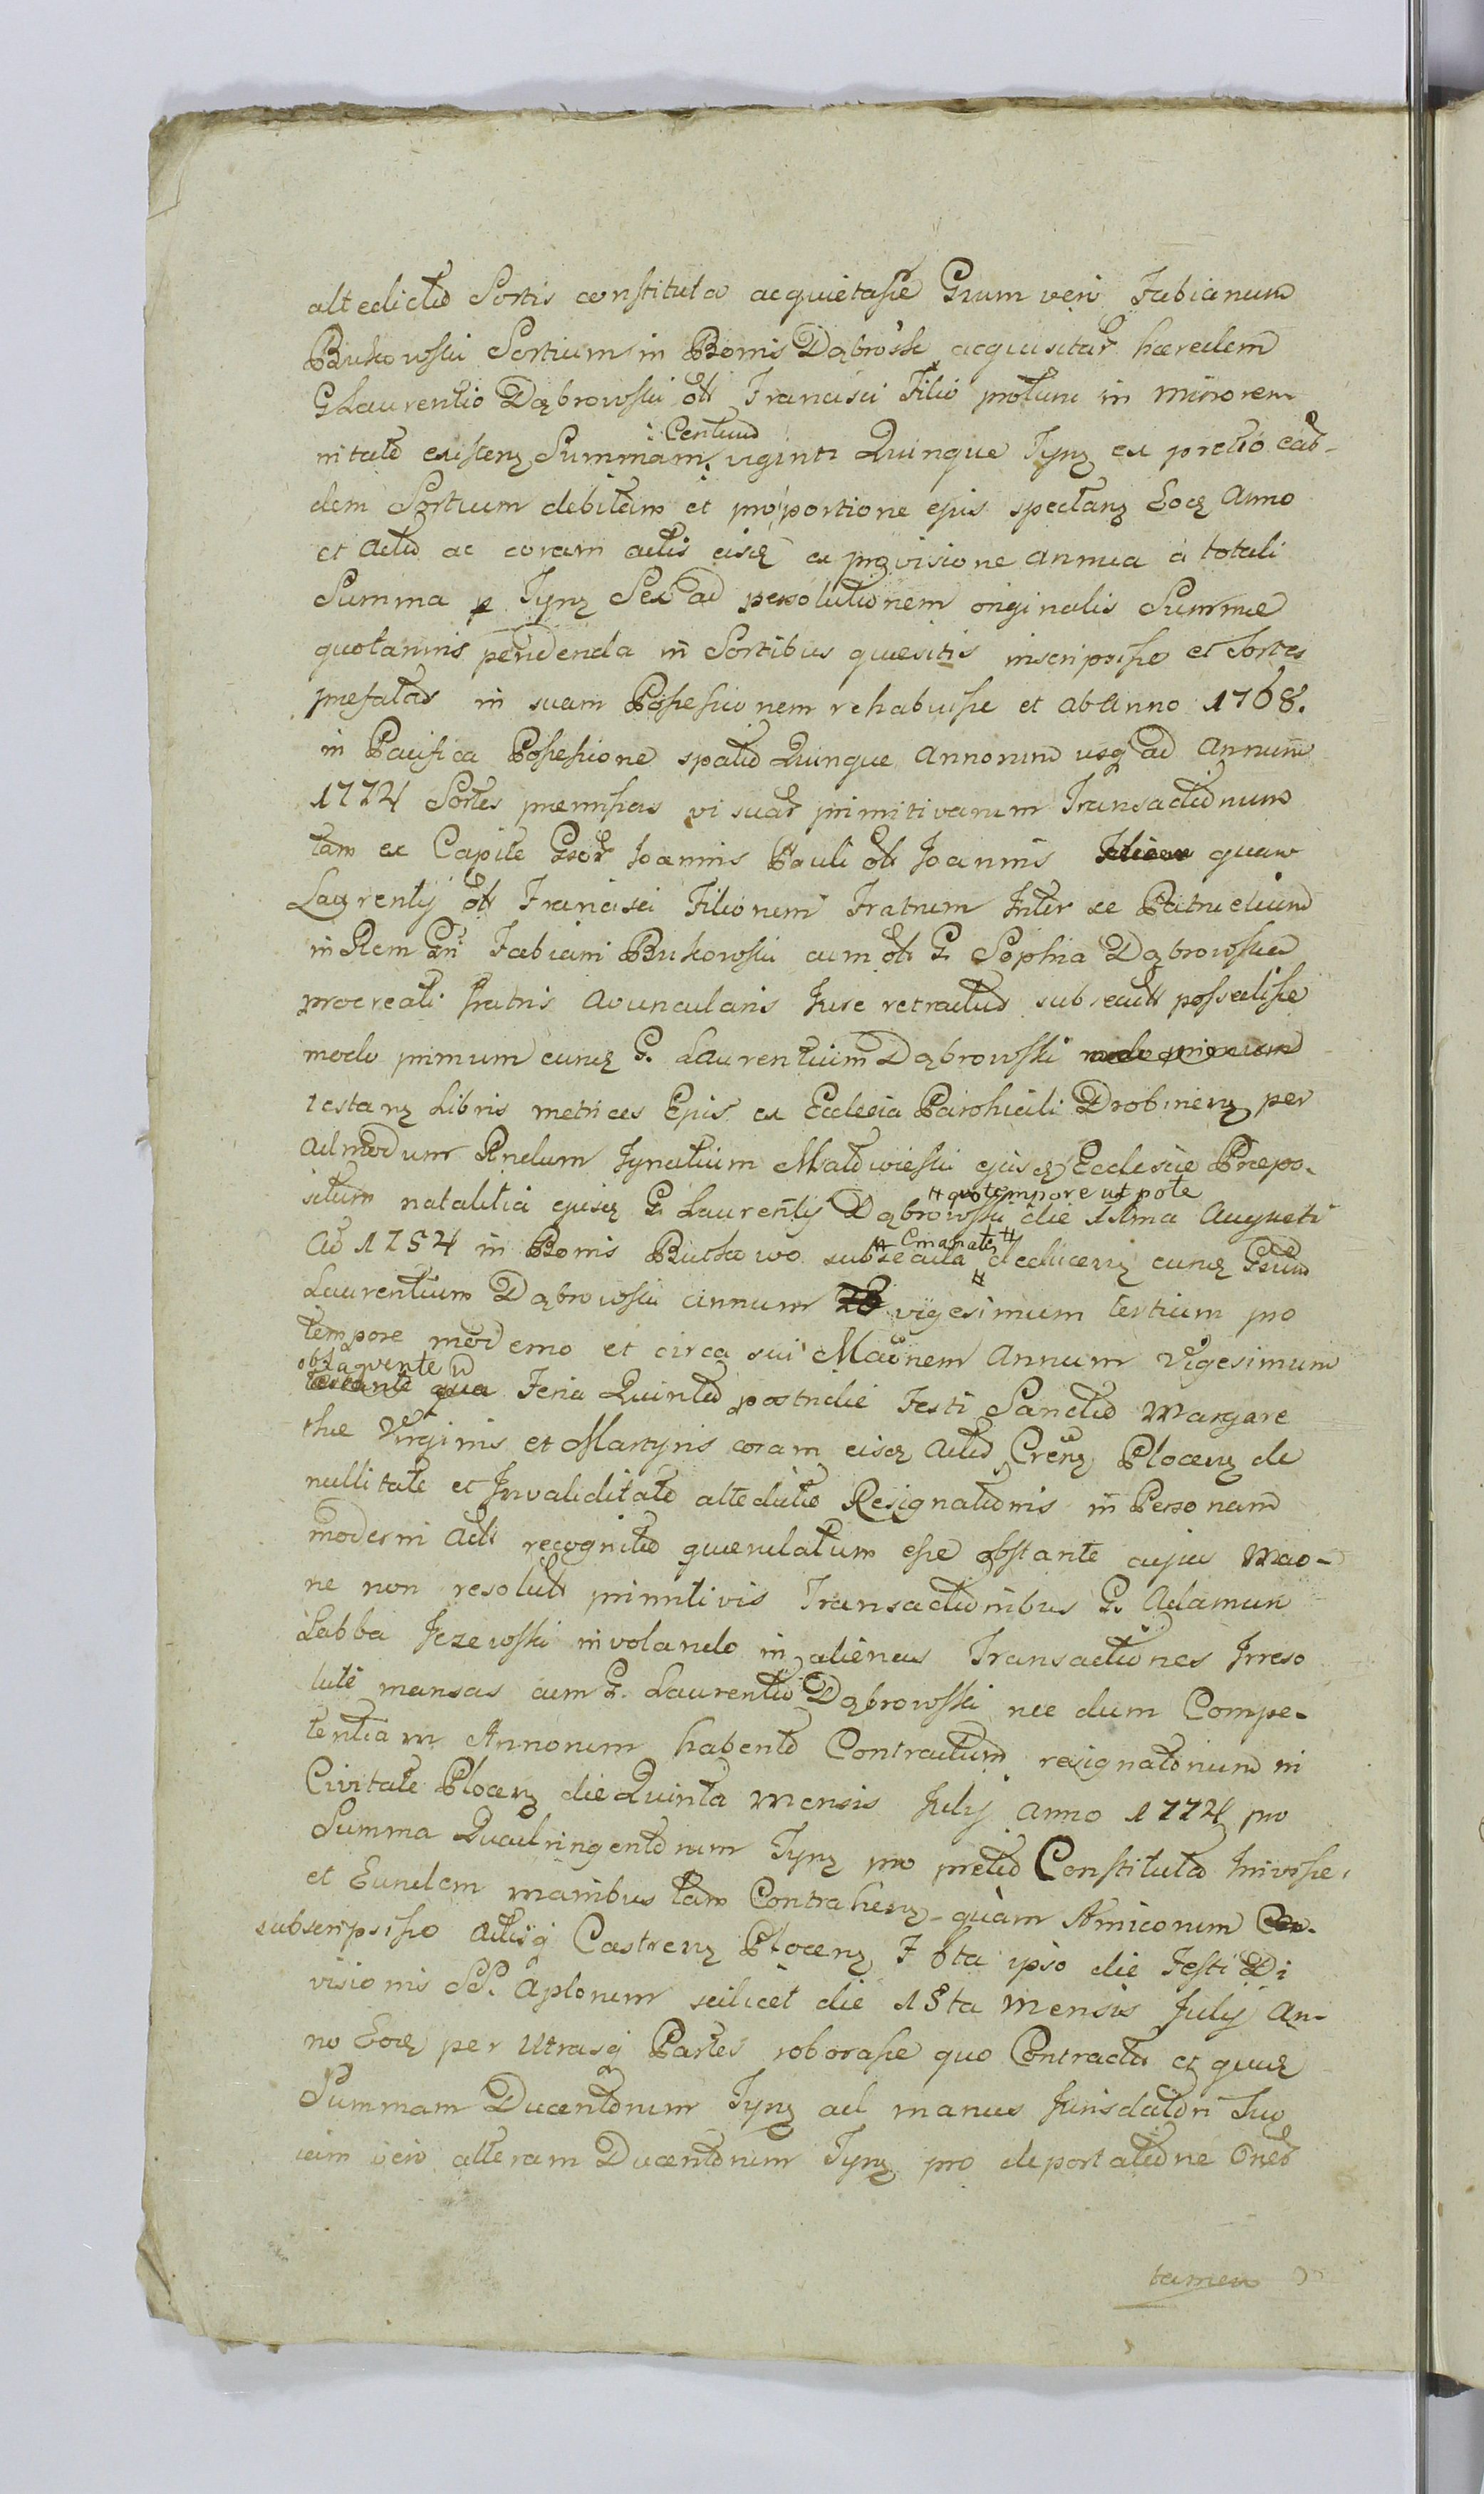 altedictae Sortis constituta acquietasse Grum vero Fabianum
Bukowski Sortium in Bonis Dąbrosk acquisitar haeredem
G Laurentio Dąbrowski olt Francisci Filio protunc in minoren
nitate existenz Summam Centum viginti Quinque Tynz ex pretio ead-
dem Sortium debitam et pro portione ejus spectanz Eoq Anno
et Actu ac coram actis eisq ex provisione annua a totali
Summa p Tynz Sex ad persolutionem originalis Summae
quotannis pendenda in Sortibus quaesitis inscripsisse et Sortes
praefatas in suam Possessionem rehabuisse et ab Anno 1768.
in Pacifica Possessione spatio Quinque Annorum usq ad Annum
1774 Sortes praemissas vi suar primitivarum Transactionum
tam ex Capite Gsor Joannis Pauli olt Joannis quam
Laurentij olt Francisci Filiorum Fratrum Inter se Patruelium
in Rem Gni Fabiani Bukowski cum olt G. Sophia Dąbrowska
procreati fratris avuncularis Jure retractus subsecutt possedisse
modo primum eunq G. Laurentium Dąbrowski modo primum
testanz Libris metrices Ejus ex Ecclesia Parohiali Drobinenz per
admodum Rndum Ignatium Matowieski ejusq Ecclesiae Praepo-
situm natalitia ejusq G. Laurentij Dąbrowski # quo tempore ut pote die 11ma Augusti
Ao 1754 in Bonis Bukowo subsecuta # Emanatz # deducenz eunq Gsum
Laurentium Dąbrowski annum vigesimum tertium pro
tempore moderno et circa sui Maonem Annum Vigesimum
obloquente Feria Quinta postridie Festi Sanctae Margare
thae Virginis et Martyris coram eisq Actis Crenz Plocenz de
nullitate et Invaliditate altedictae Resignationis in Personam
moderni Actt recognitae querulatum esse obstante cujus Mao-
ne non resolutt primitivis Transactionibus G. Adamun
Labba Jezewski involando in alienas Transactiones Irreso
lute mansas cum G. Laurentio Dąbrowski nec dum Compe-
tentiam Annorum habente Contractum resignatorium in
Civitate Plocenz die Quinta Mensis July anno 1774 pro
Summa Quadringentorum Tynz pro pretio Constituta Inivisse,
et Eundem manibus tam Contrahenz quam Amicorum
subscripsisse Actisq Castrenz Plocenz F 6ta ipso die Festi Di
visionis SS. Aplorum scilicet die 15ta Mensis July An-
no Eoq per Utrasq Partes roborasse quo Contractu et quuq
Summam Ducentorum Tynz ad manus Jurisdatori Suo
iam vero alteram Ducentorum Tynz pro deportatione Oneb
tamen